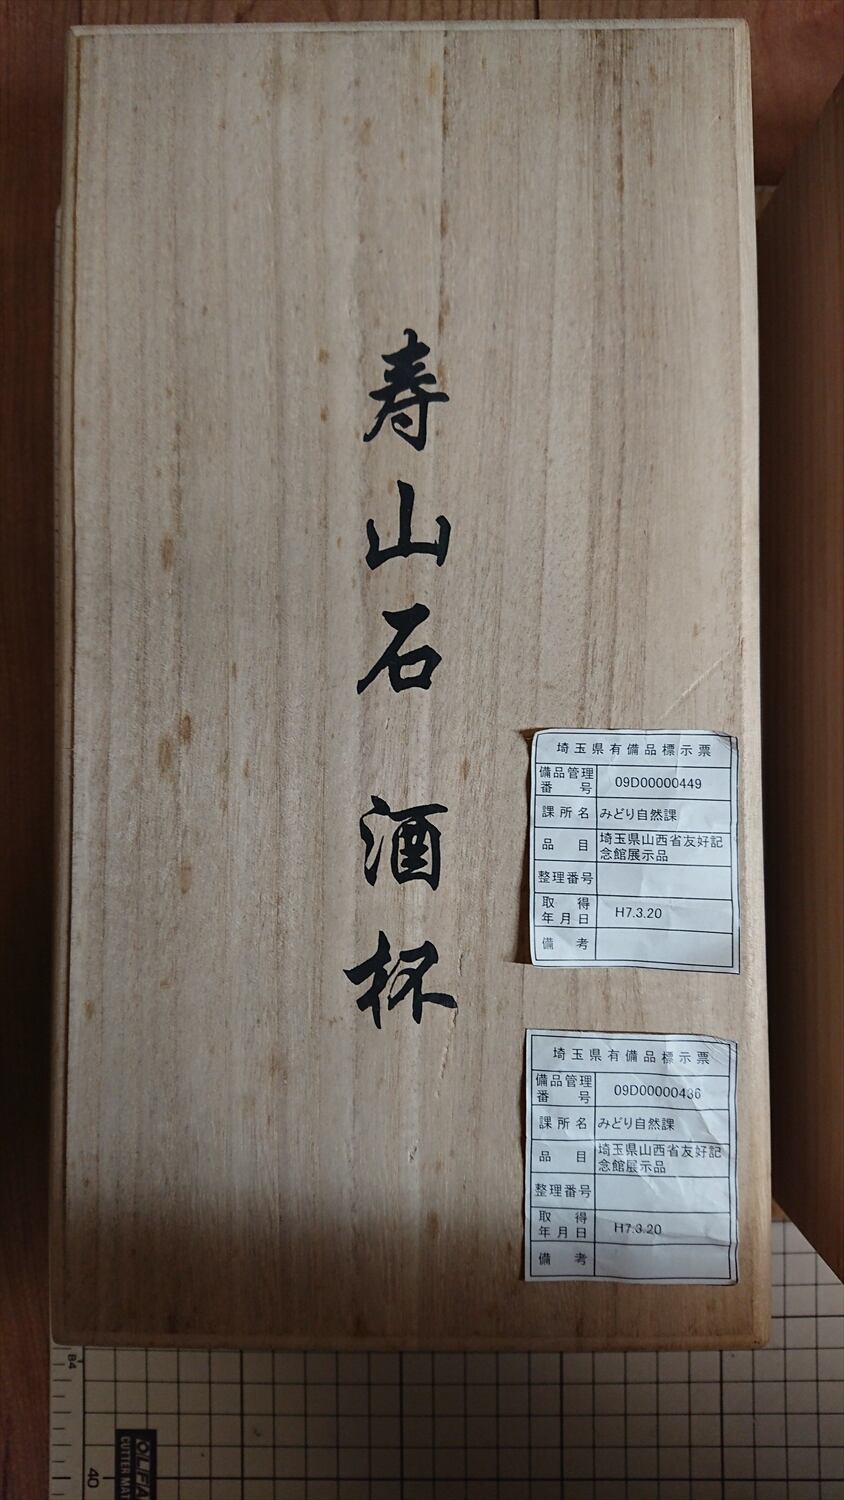 寿山石 酒杯
埼玉県有備品標示票
備品管理番号 09D00000449
課所名 みどり自然課
品目 埼玉県山西省友好記念館展示品
整理番号
取得年月日 H7.3.20
備考
埼玉県有備品標示票
備品管理番号 09D00000436
課所名 みどり自然課
品目 埼玉県山西省友好記念館展示品
整理番号
取得年月日 H7.3.20
備考
B4
40
OLFA
CUTTER MAT